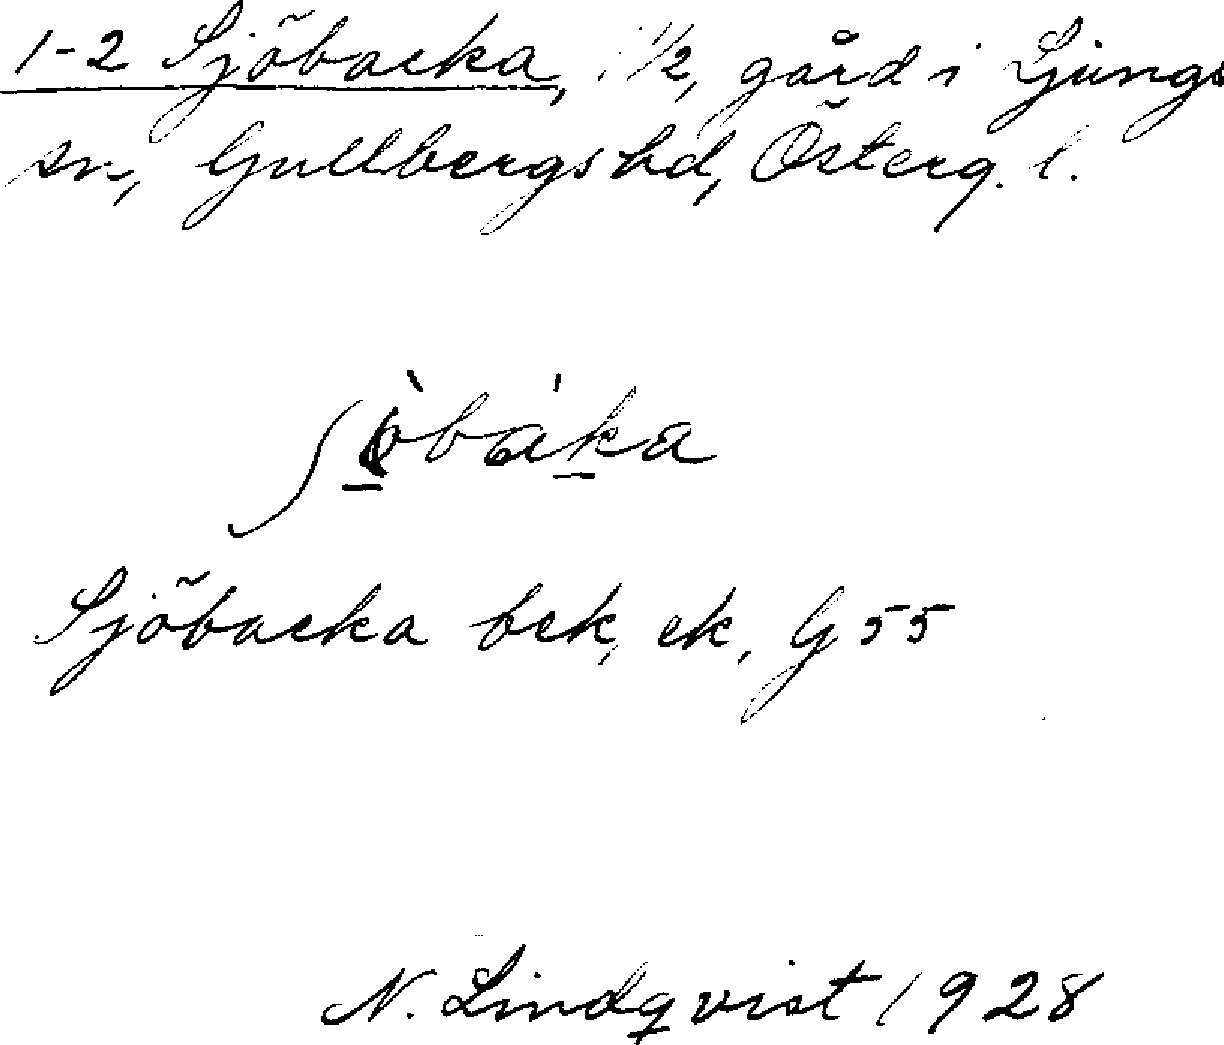 1-2 Sjöbacka, 1/2, gård i Ljungs
sn, Gullbergs hd, Österg. l.
Sjöbacka bek, ek, G 55
N. Lindqvist 1928